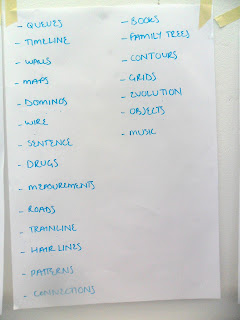 - QUEUES
- TIMELINE
- WALLS
- MAPS
- DOMINOS
- WIRE
- SENTENCE
- DRUGS
- MEASUREMENTS
- ROADS
- TRAINLINE
- HAIR LINES
- PATTERNS
- CONNECTIONS
- BOOKS
- FAMILY TREES
- CONTOURS
- GRIDS
- EVOLUTION
- OBJECTS
- MUSIC